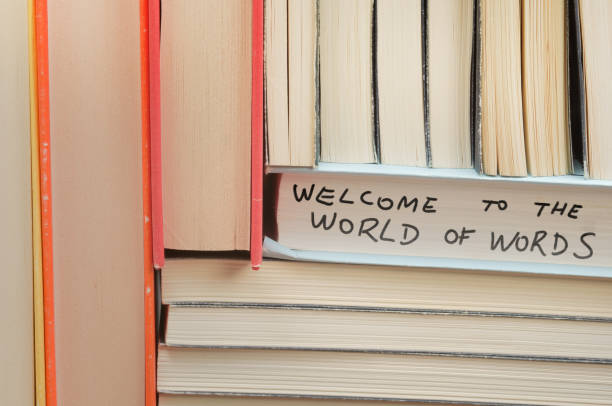 WELCOME TO THE
WORLD OF WORDS